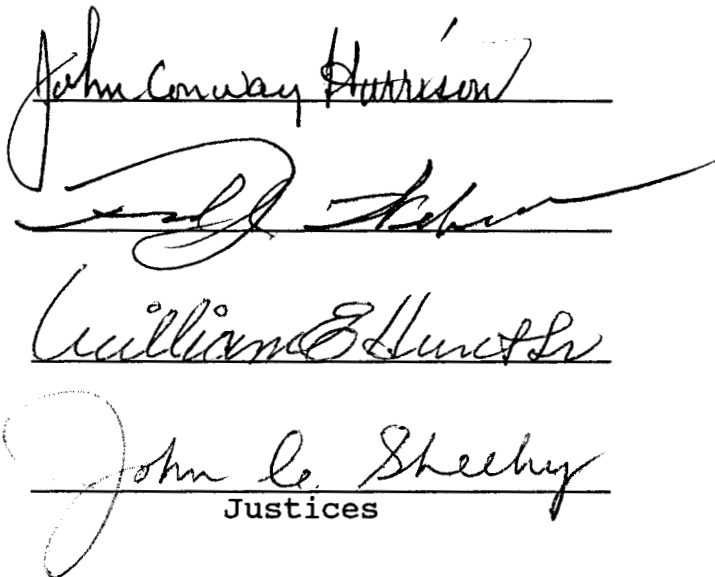 John Conway Harrison
William E Hunt Sr
John C. Sheehy
Justices